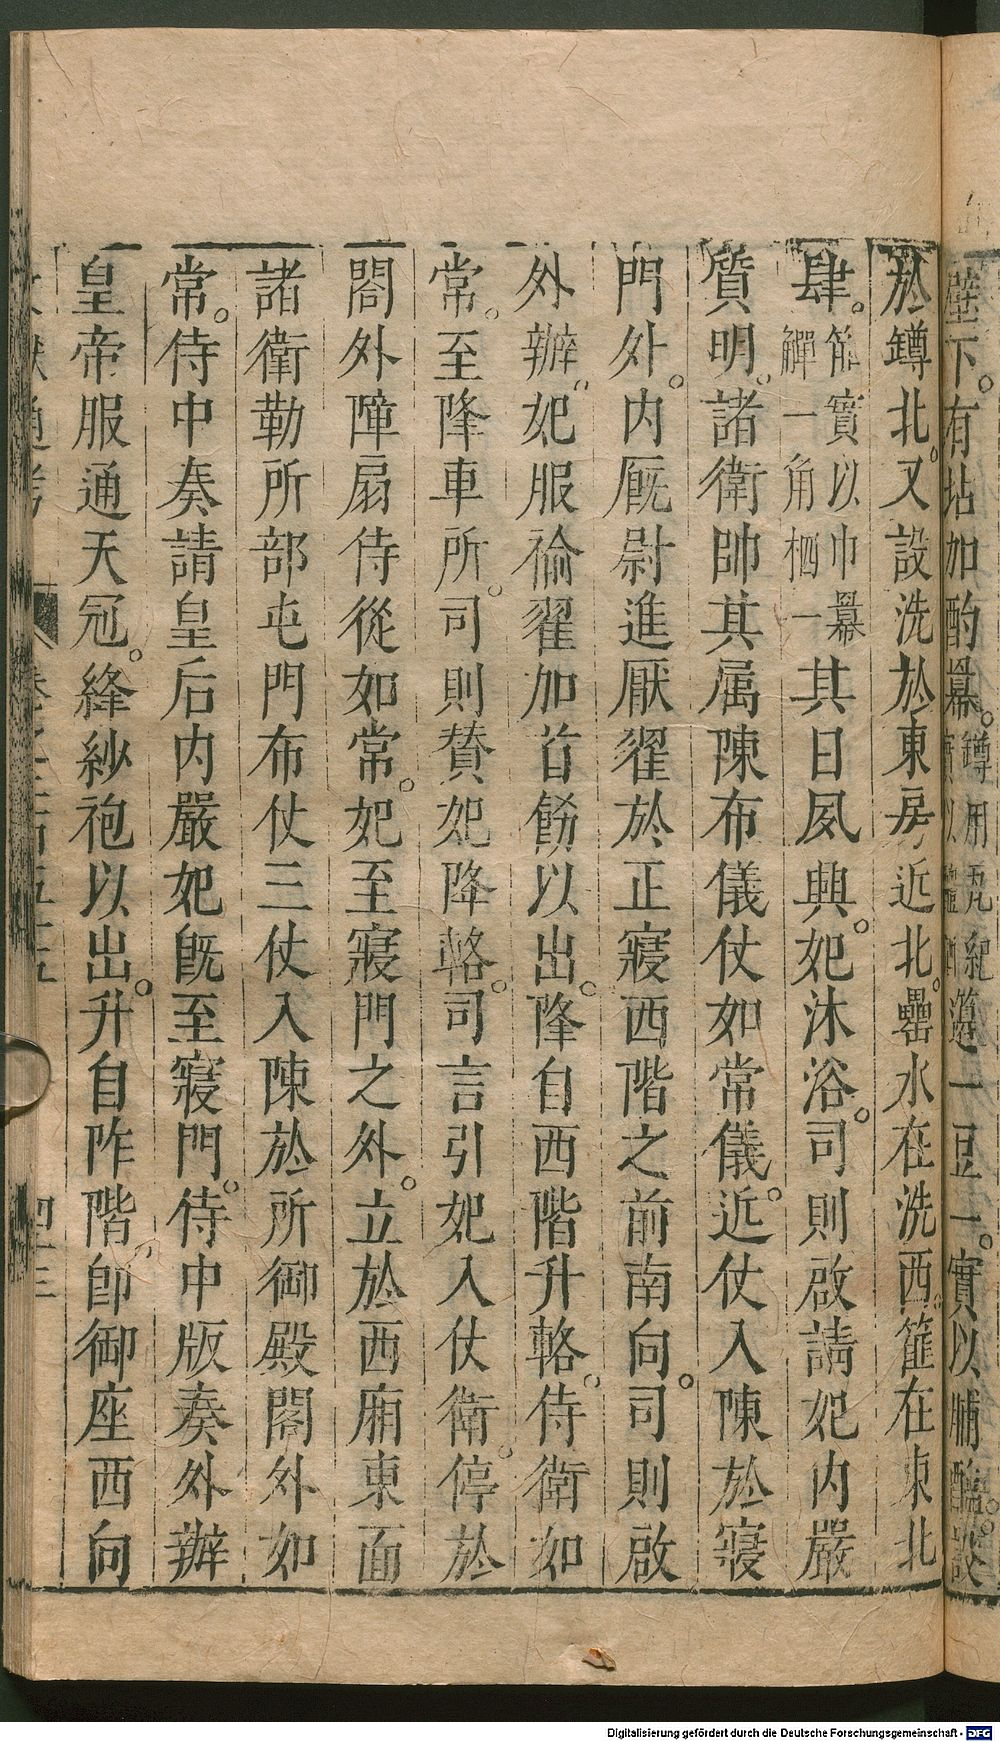 壁下。有坫加酌羃。鐏用瓦 實以醴 籩一豆一。實以脯醢。設
於鐏北。又設洗於東房近北。罍水在洗西。篚在東北
肆。篚實以巾羃
觶一角栖一
其日夙興。妃沐浴。司則啟請妃內嚴
質明。諸衛帥其属陳布儀仗如常儀。近仗入陳於寢
門外。内厩尉進厭翟於正寢西階之前南向。司則啟
外辦。妃服褕翟加首餝以出。降自西階升輅。侍衛如
常。至降車所。司則賛妃降輅。司言引妃入仗衛。停於
閤外障扇侍從如常。妃至寢門之外。立於西廂東面
諸衛勒所部屯門布仗三仗入陳於所御殿閤外如
常。侍中奏請皇后内嚴妃既至寢門。侍中版奏外辦
皇帝服通天冠。絳紗袍以出。升自阼階。卽御座西向
文獻通考 卷之二百五十五 四十三
Digitalisierung gefördert durch die Deutsche Forschungsgemeinschaft - DFG